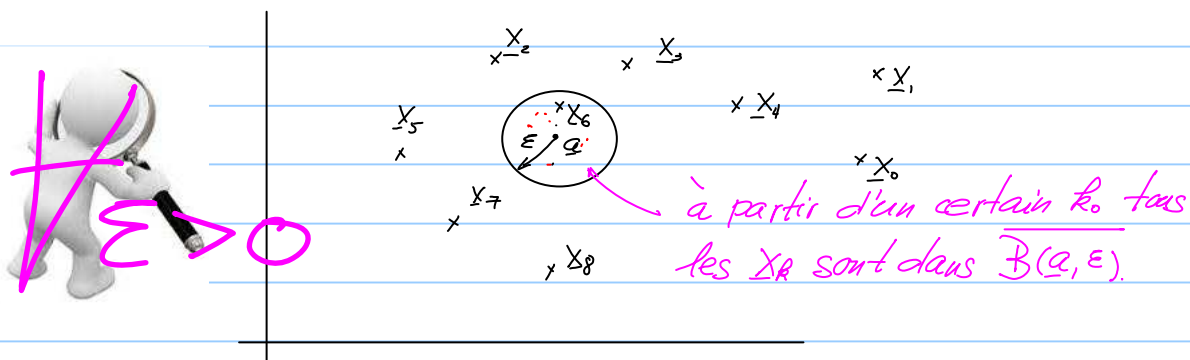 X₂
X₃
X₁
X₄
X₅
X₆
ε
a
X₀
X₇
X₈
∀ ε > 0
à partir d'un certain k₀ tous
les X_k sont dans B(a, ε).